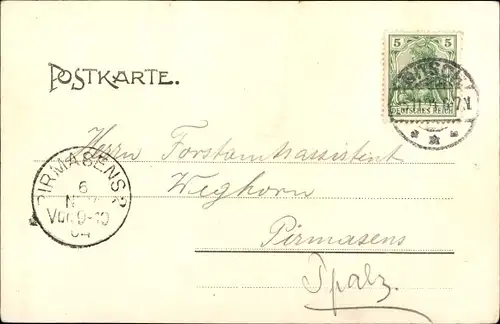 POSTKARTE.
5
DEUTSCHES REICH
Herrn Forstamtsassistent
Weghorn
Pirmasens
Pfalz.
PIRMASENS 2
6
NOV
Vor. 9-10
04